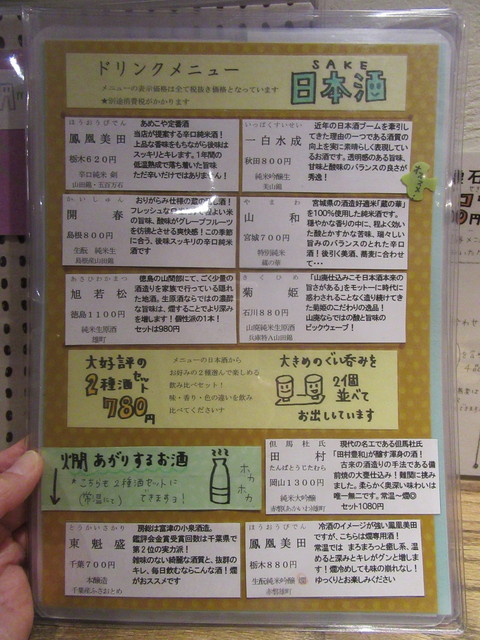 ドリンクメニュー
メニューの表示価格は全て税抜き価格となっています
★別途消費税がかかります
SAKE
日本酒
ほうおうびでん
鳳凰美田
栃木620円
辛口純米 剣
山田錦・五百万石
あめこや定番酒
当店が提案する辛口純米酒!
上品な香味をもちながら後味は
スッキリとキレます。1年間の
低温熟成で落ち着いた旨味
ただ辛いだけではありません!
いっぱくすいせい
一白水成
秋田800円
純米吟醸生
美山錦
近年の日本酒ブームを牽引し
てきた理由の一つである酒質の
向上を実に素晴らしく表現してい
るお酒です。透明感のある旨味、
甘味と酸味のバランスの良さが
秀逸!
かいしゅん
開春
島根800円
生酛 純米生
島根産山田錦
おりがらみ仕様の
フレッシュな
の旨味、酸味がグレープフルーツ
を彷彿とさせる爽快感!この季節
に合う、後味スッキリの辛口純米
酒です
やまわ
山和
宮城700円
特別純米
蔵の華
宮城県の酒造好適米「蔵の華」
を100%使用した純米酒です。
穏やかな香りの中に、程よく効い
た酸とかすかな苦味、瑞々しい
旨みのバランスのとれた辛口
酒!後引く美酒、蕎麦に合わせ
て・・・
あさひわかまつ
旭若松
徳島1100円
純米生原酒
雄町
徳島の山間部にて、ごく少量の
酒造りを家族で行っている隠
れた地酒。生原酒ならではの濃醇
な旨味は、燗することでより深み
を増します!個性派の1本!
セットは980円
きくひめ
菊姫
石川880円
山廃純米生原酒
兵庫特A山田錦
「山廃仕込みこそ日本酒本来の
旨さがある」をモットーに時代に
惑わされることなく造り続けてき
た菊姫のこだわりの逸品!
山廃ならではの酸と旨味の
ビックウェーブ!
大好評の
2種酒セット
780円
メニューの日本酒から
お好みの2種選んで楽しめる
飲み比べセット!
味・香り・色の違いを飲み
比べてください♪
大きめのぐい呑みを
2個
並べて
お出ししています
燗あがりするお酒
*こちらも2種酒セット
(常温にて)できますヨ!
ホカホカ
但馬杜氏
田村
たんばとうじたむら
岡山1300円
純米大吟醸
赤磐(あかいわ)雄町
現代の名工である但馬杜氏
「田村豊和」が醸す渾身の酒!
古来の酒造りの手法である備
前焼の大甕仕込み!難関に挑み
ました。柔らかく奥深い味わいは
唯一無二です。常温~燗◎
セット1080円
とうかいさかり
東魁盛
千葉700円
本醸造
千葉産ふさおとめ
房総は富津の小泉酒造。
鑑評会金賞受賞回数は千葉県で
第2位の実力派!
雑味のない綺麗な酒質と、抜群の
キレ、毎日飲むならこんな酒!燗
がおススメです
ほうおうびでん
鳳凰美田
栃木880円
生酛純米吟醸
赤磐雄町
冷酒のイメージが強い鳳凰美田
ですが、こちらは燗専用酒!
常温では まろまろっと癒し系、温
めると深みとキレがグンと増しま
す!燗冷めしても味の崩れなし!
ゆっくりとお楽しみください